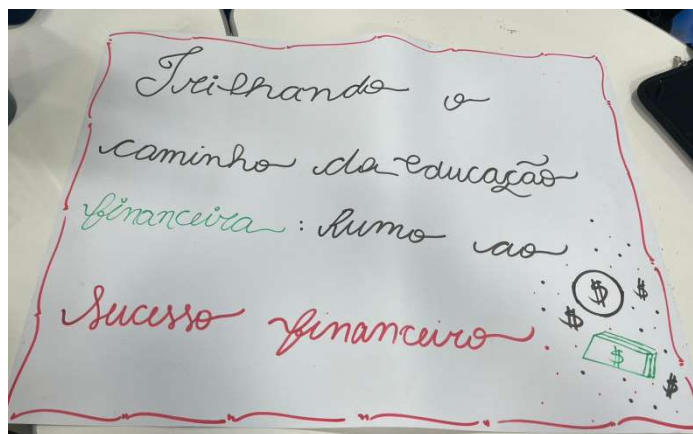 Trilhando o
caminho da educação
financeira : Rumo ao
sucesso financeiro
$ $
$
$
$